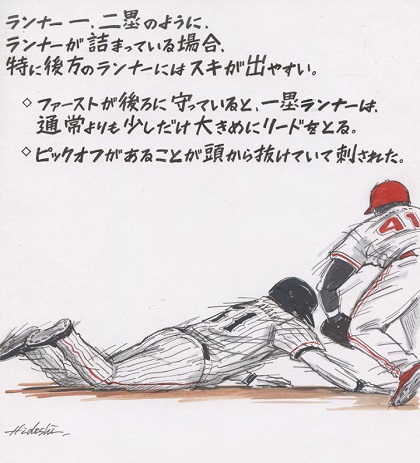 ランナー 一、二塁のように、
ランナーが詰まっている場合、
特に後方のランナーにはスキが出やすい。
◇ ファーストが後ろに守っていると、一塁ランナーは、
通常よりも少しだけ大きめにリードをとる。
◇ ピックオフがあることが頭から抜けていて刺された。
41
11
Hideshi